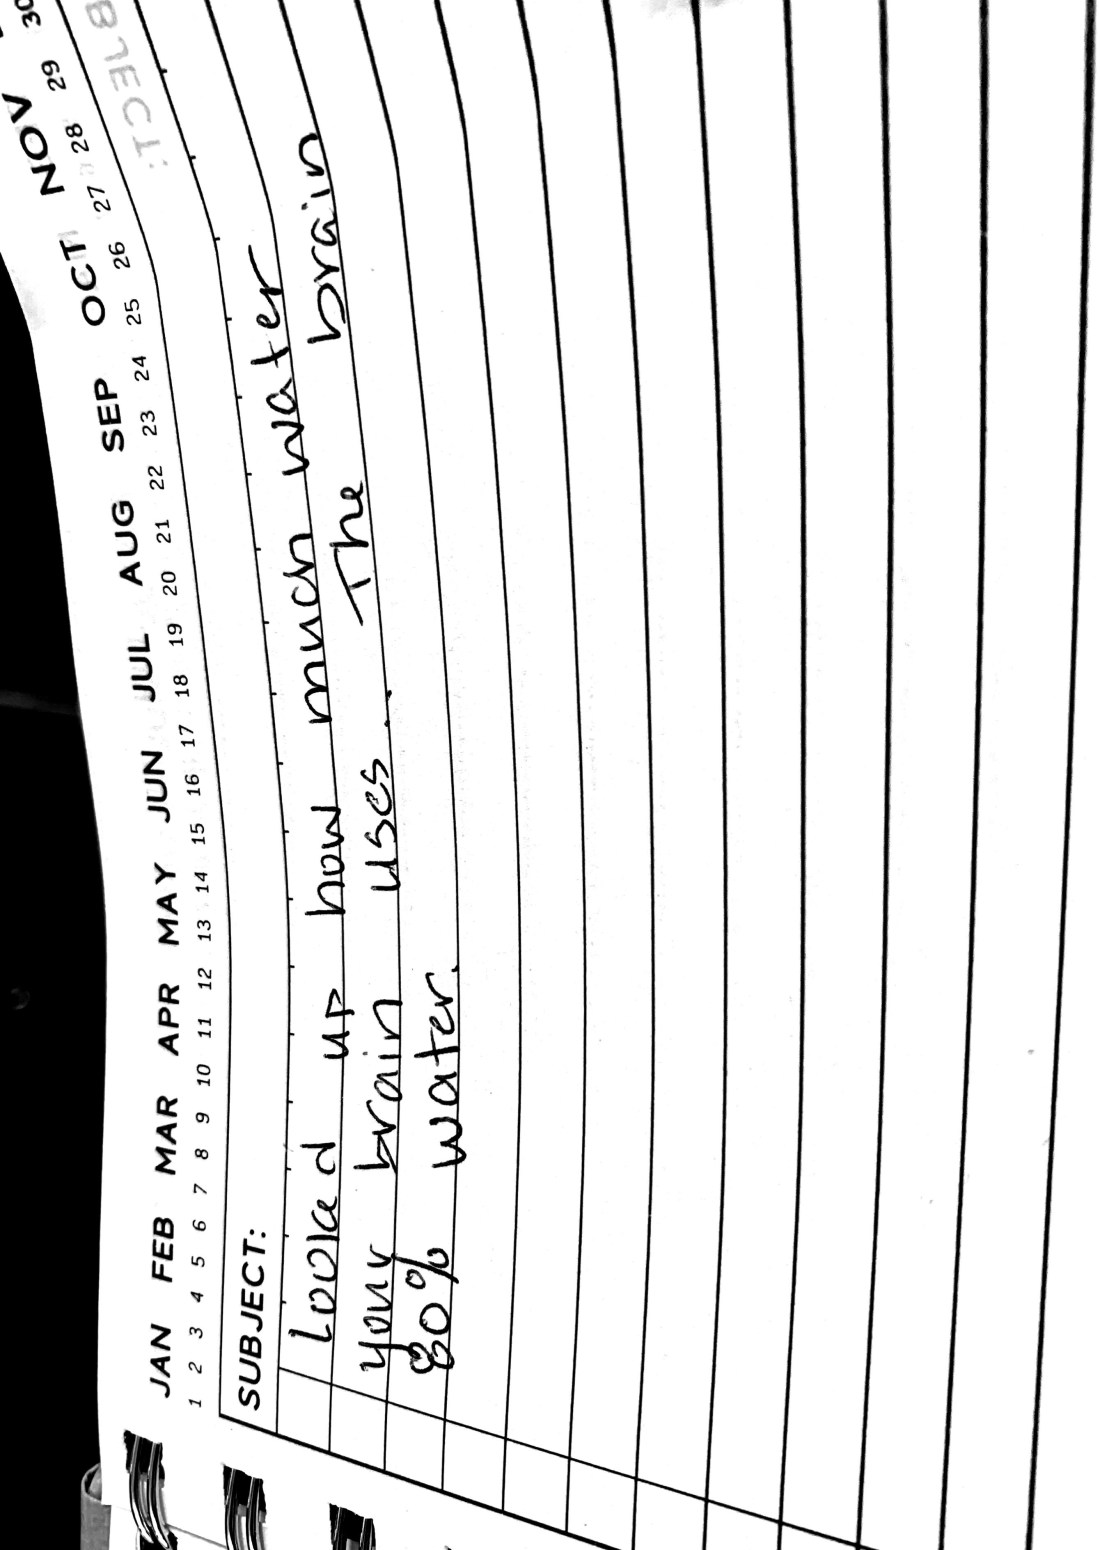 JAN FEB MAR APR MAY JUN JUL AUG SEP OCT NOV
1 2 3 4 5 6 7 8 9 10 11 12 13 14 15 16 17 18 19 20 21 22 23 24 25 26 27 28 29 30
SUBJECT:
Looked up how much water
your brain uses... The brain
80% water.